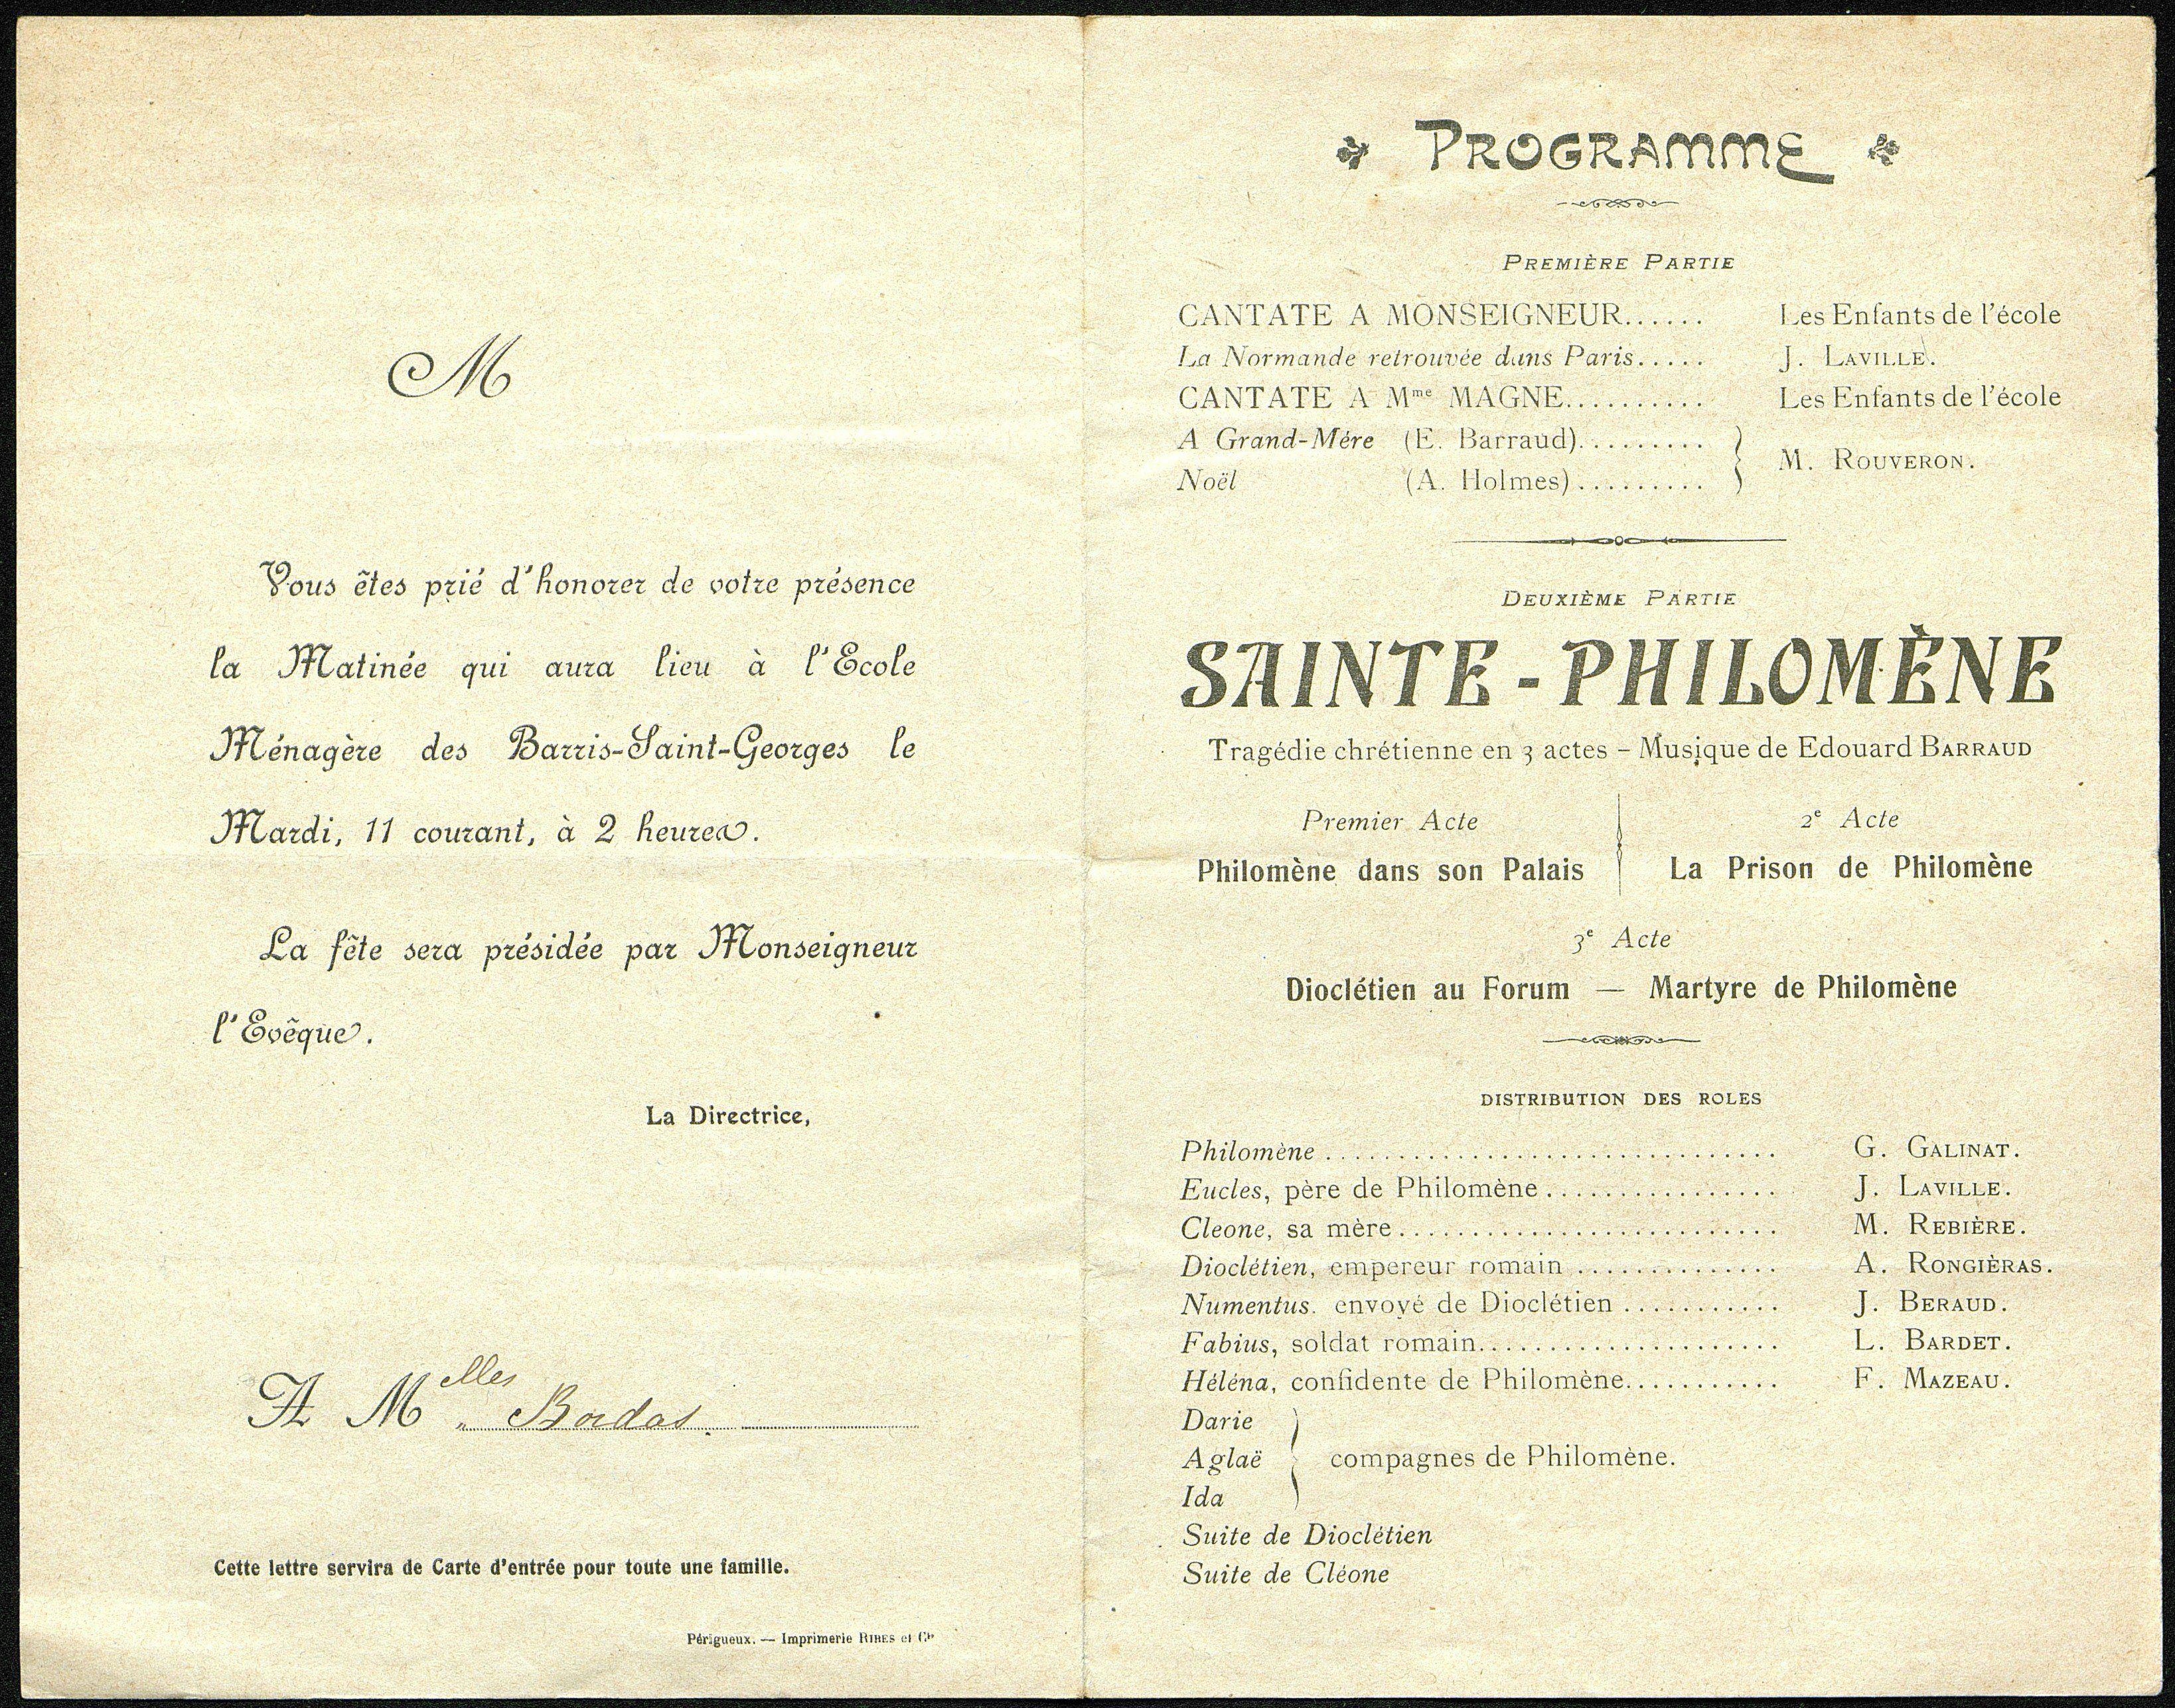 M
Vous êtes prié d'honorer de votre présence
la Matinée qui aura lieu à l'Ecole
Ménagère des Barris-Saint-Georges le
Mardi, 11 courant, à 2 heures.
La fête sera présidée par Monseigneur
l'Evêque.
La Directrice,
A M elles Bordas.
Cette lettre servira de Carte d'entrée pour toute une famille.
Périgueux. — Imprimerie RIBES et Cie
PROGRAMME
PREMIÈRE PARTIE
CANTATE A MONSEIGNEUR...... Les Enfants de l'école
La Normande retrouvée dans Paris..... J. LAVILLE.
CANTATE A Mme MAGNE.......... Les Enfants de l'école
A Grand-Mère (E. Barraud).........
Noël (A. Holmes).........
} M. ROUVERON.
DEUXIÈME PARTIE
SAINTE-PHILOMÈNE
Tragédie chrétienne en 3 actes – Musique de Edouard BARRAUD
Premier Acte
Philomène dans son Palais
2e Acte
La Prison de Philomène
3e Acte
Dioclétien au Forum — Martyre de Philomène
DISTRIBUTION DES ROLES
Philomène ............................... G. GALINAT.
Eucles, père de Philomène................ J. LAVILLE.
Cleone, sa mère.......................... M. REBIÈRE.
Dioclétien, empereur romain .............. A. RONGIÈRAS.
Numentus. envoyé de Dioclétien ........... J. BERAUD.
Fabius, soldat romain..................... L. BARDET.
Héléna, confidente de Philomène........... F. MAZEAU.
Darie
Aglaë } compagnes de Philomène.
Ida
Suite de Dioclétien
Suite de Cléone